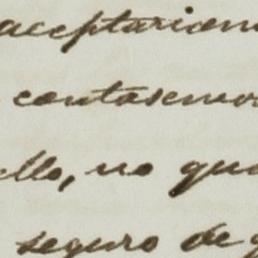 aceptarian
contasemos
ello, no que
seguro de q